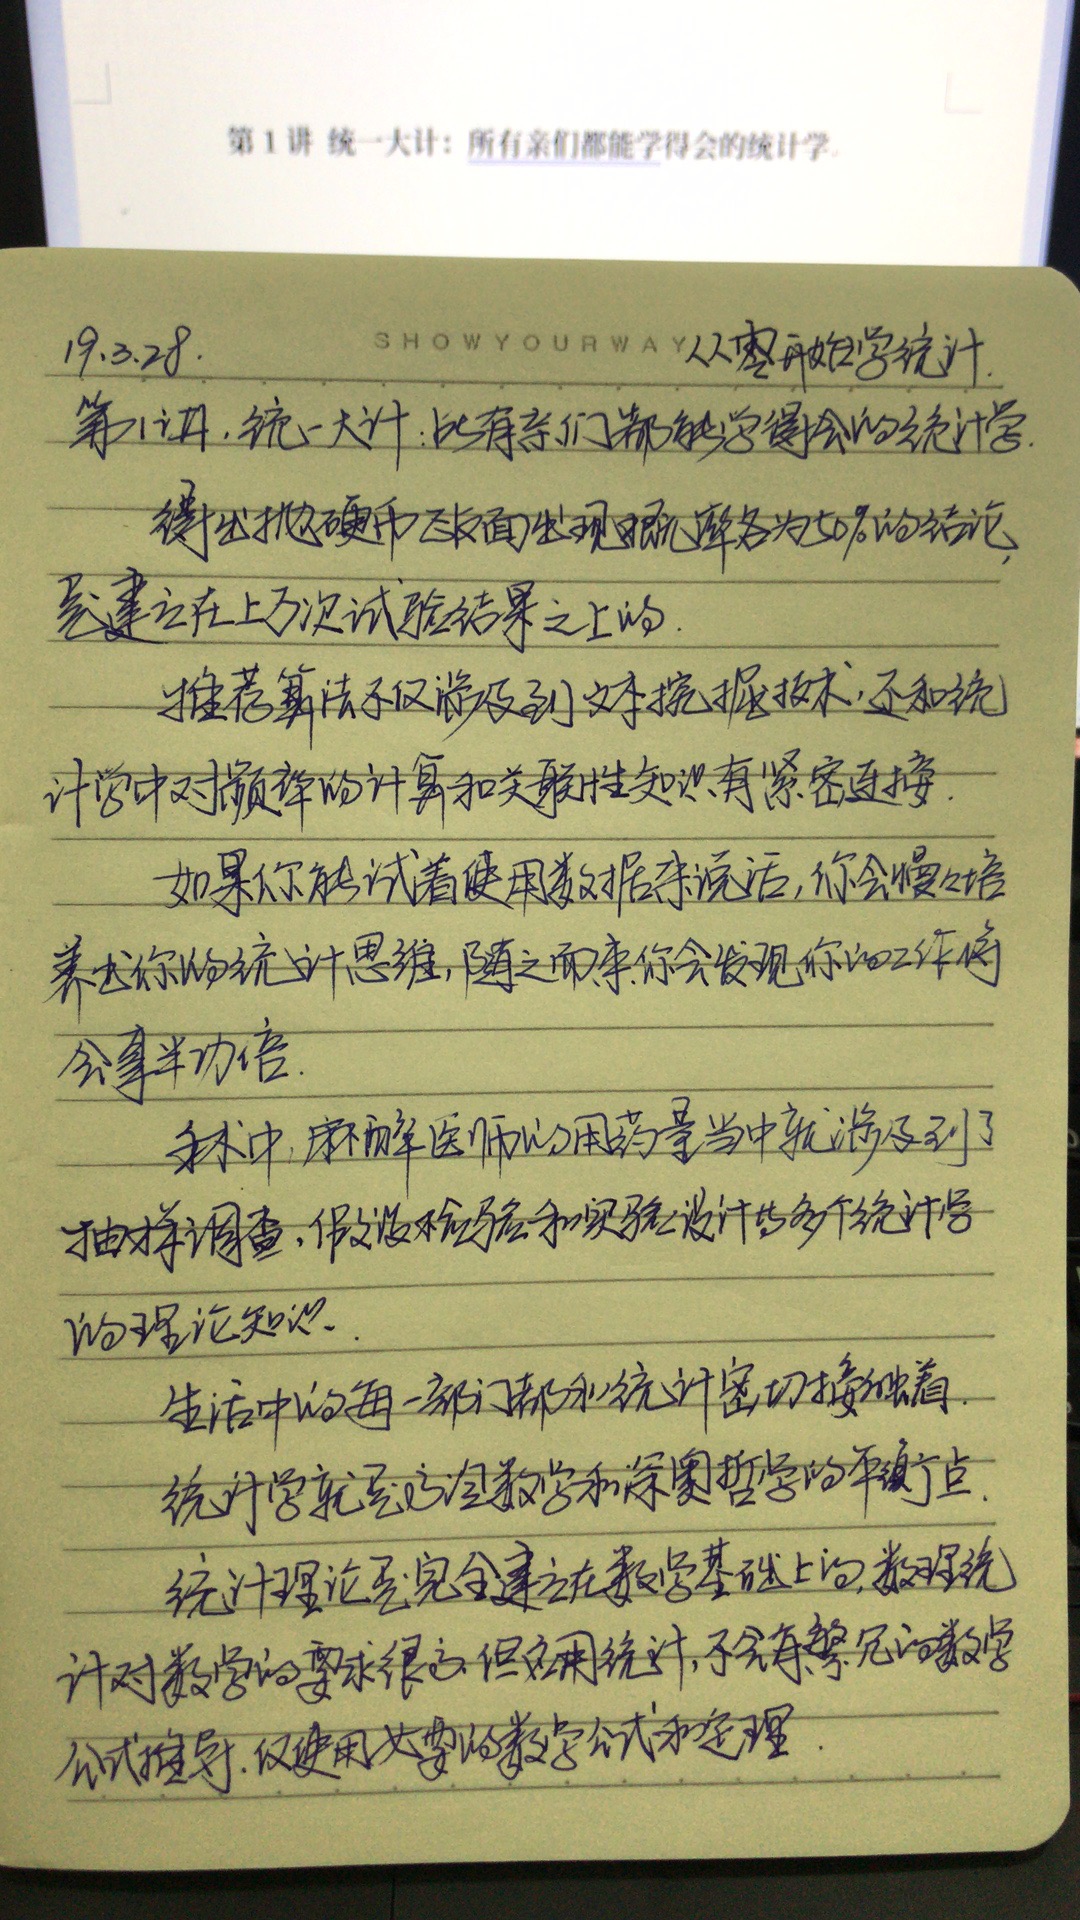 第 1 讲 统一大计：所有亲们都能学得会的统计学
SHOWYOURWAY
19.3.28. 从零开始学统计.
第1讲. 统一大计：所有亲们都能学得会的统计学.
得出抛硬币正反面出现概率各为50%的结论,
是建立在上万次试验结果之上的.
推荐算法不仅涉及到文本挖掘技术,还和统
计学中对频率的计算和关联性知识有紧密连接.
如果你能试着使用数据来说话,你会慢々培
养出你的统计思维,随之而来你会发现你的工作将
会事半功倍.
手术中,麻醉医师的用药量当中就涉及到了
抽样调查、假设检验和实验设计等多个统计学
的理论知识.
生活中的每一部门都和统计密切接触着.
统计学就是高冷数学和深奥哲学的平衡点.
统计理论是完全建立在数学基础上的,数理统
计对数学的要求很高,但应用统计,不会有繁冗的数学
公式推导,仅使用必要的数学公式和定理.